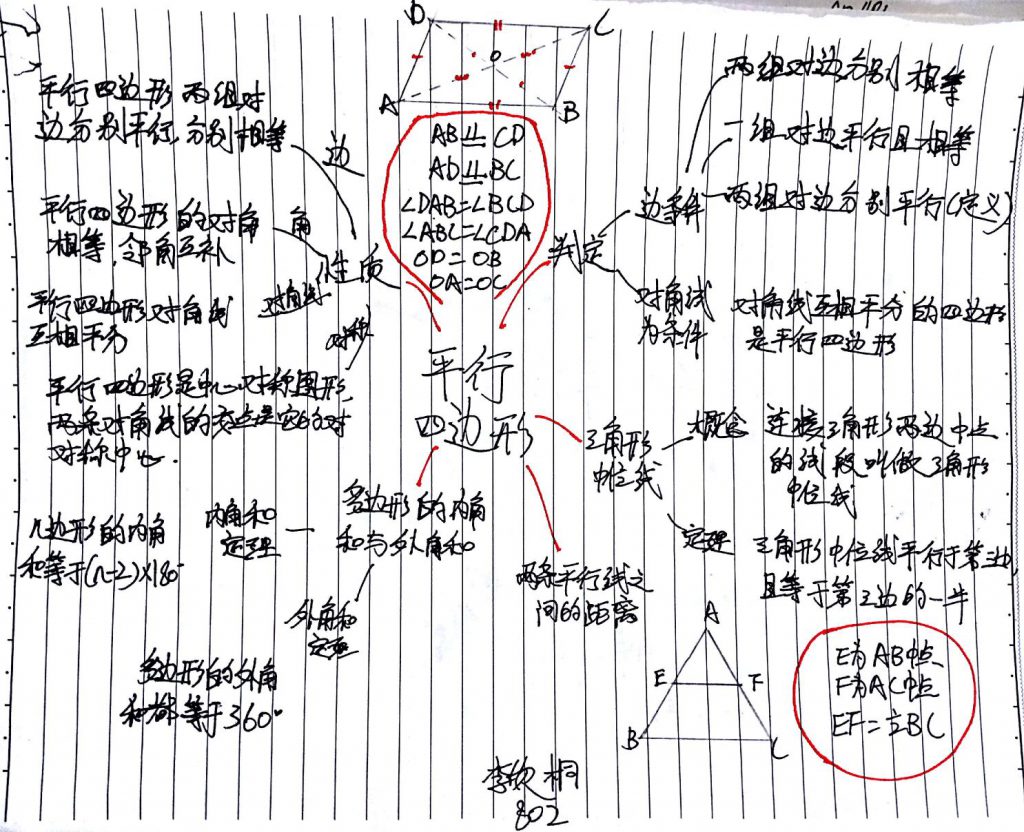 D
C
O
A
B
AB⫫CD
AD⫫BC
∠DAB=∠BCD
∠ABC=∠CDA
OD=OB
OA=OC
平行四边形
性质
边
平行四边形两组对
边分别平行,分别相等
角
平行四边形的对角
相等,邻角互补
对角线
平行四边形对角线
互相平分
对称
平行四边形是中心对称图形,
两条对角线的交点是它的对
对称中心.
判定
边条件
两组对边分别相等
一组对边平行且相等
两组对边分别平行(定义)
对角线
为条件
对角线互相平分的四边形
是平行四边形
三角形
中位线
概念
连接三角形两边中点
的线段叫做三角形
中位线
定理
三角形中位线平行于第三边,
且等于第三边的一半
A
E
F
B
C
E为AB中点
F为AC中点
EF=½BC
两条平行线之
间的距离
多边形的内角
和与外角和
内角和
定理
n边形的内角
和等于(n-2)×180°
外角和
定理
多边形的外角
和都等于360°
李
桐
802